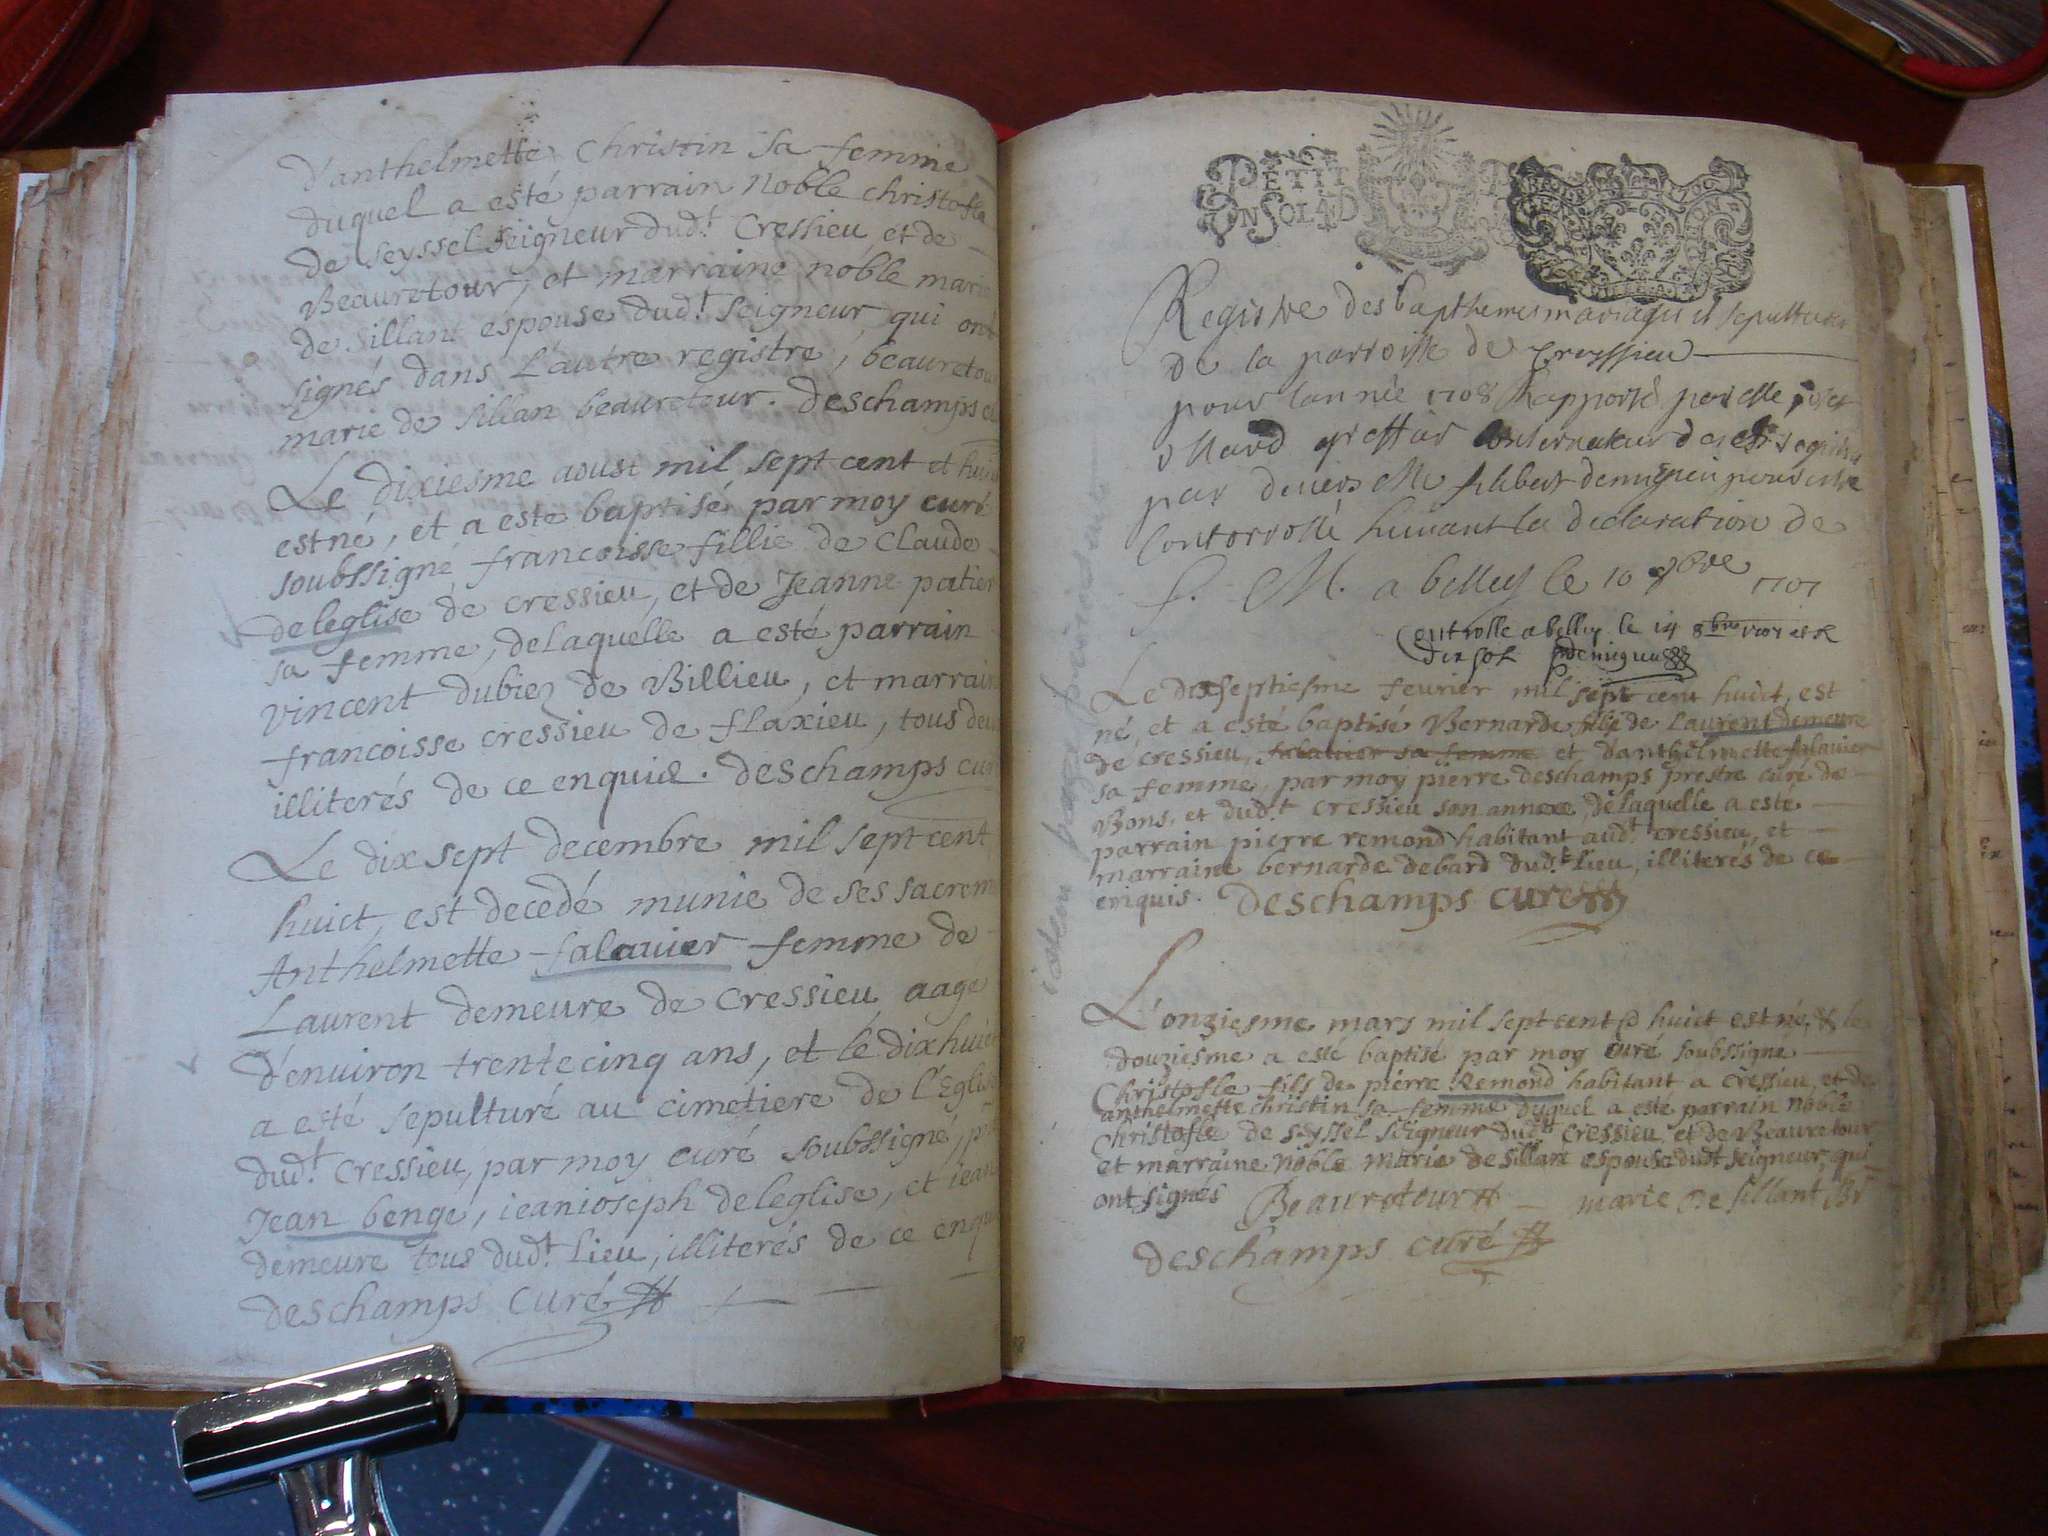 d'anthelmette Christin sa femme
duquel a esté parrain Noble christofle
de seyssel seigneur dud.t Cressieu et de
Beauretour, et marraine noble marie
de sillant espouse dud.t seigneur qui ont
signés dans l'autre registre, beauretour
marie de sillan beauretour. Deschamps
Le dixiesme aoust mil sept cent et huict
est né, et a este baptisé par moy curé
soubssigné francoisse fillie de Claude
deleglise de cressieu, et de Jeanne patier
sa femme, de laquelle a esté parrain
vincent dubiez de Billieu, et marraine
francoisse cressieu de flaxieu, tous deux
illiterés de ce enquis. Deschamps curé
Le dix sept decembre mil sept cent
huict, est decedé munie de ses sacrem
Anthelmette falavier femme de
Laurent demeure de cressieu aage
d'environ trente cinq ans, et le dix huict
a esté sepulturé au cimetiere de l'Eglise
dud.t cressieu, par moy curé soubssigné,
Jean benge, ieanioseph deleglise, et iean
demeure tous dud.t lieu, illiterés de ce enquis
Deschamps curé
PETIT
UN SOL 4 D
Registre des bapthemes mariages et sepultures
de la parroisse de Creyssieu
pour lannée 1708 Rapporté par
greffier Conservateur des registres
par devers Me filibert
Controrollé suivant la declaration de
S. M. a belley le 10 1707
Controlle a belley le 14 8bre 1707
dix sols
Le dixseptiesme fevrier mil sept cent huict, est
né, et a esté baptisé Bernarde fille de Laurent demeure
de cressieu, falavier sa femme et d'anthelmette falavier
sa femme, par moy pierre deschamps prestre curé de
Bons, et dud.t cressieu son annexe, de laquelle a esté
parrain pierre remond habitant aud.t cressieu, et
marraine bernarde debard dud.t lieu, illiterés de ce
enquis. Deschamps curé
L'onziesme mars mil sept cent huict est né, & le
douziesme a esté baptisé par moy curé soubssigné
Christofle fils de pierre Remond habitant a cressieu et de
anthelmette christin sa femme duquel a esté parrain noble
Christofle de seyssel seigneur dud.t cressieu et de Beauretour
et marraine noble marie de sillant espouse dud.t seigneur, qui
ont signés Beauretour marie de sillant
deschamps curé